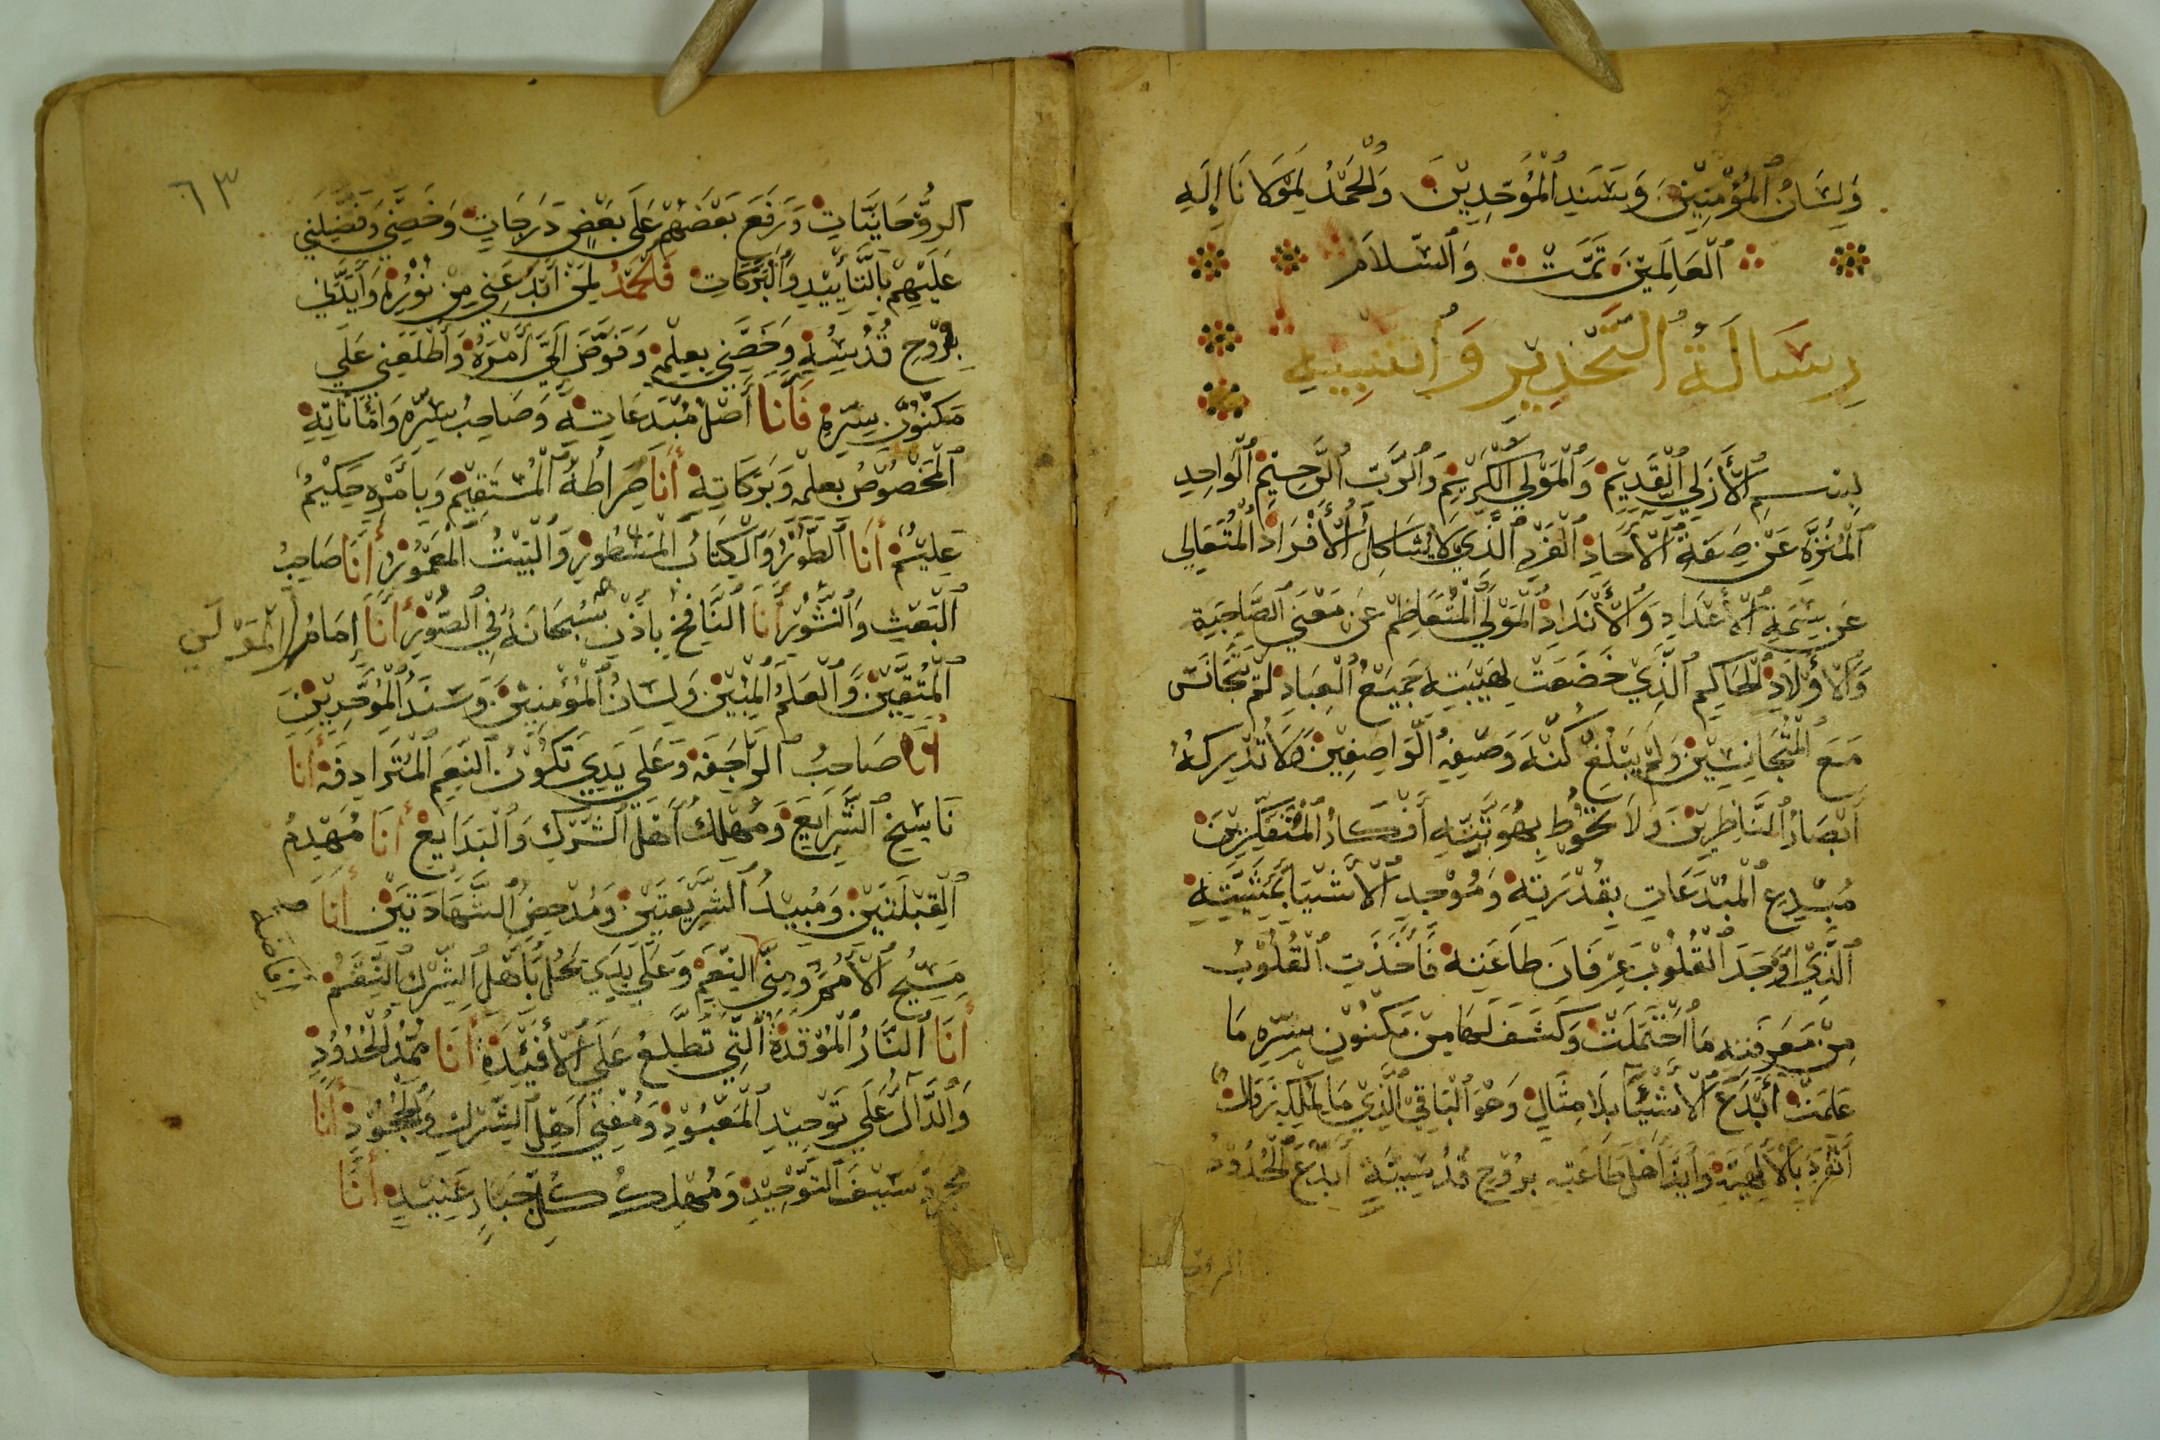 وَلِسَانُ ٱلْمُؤْمِنِيْنَ وَسَنَدِ ٱلْمُوَحِدِيْنَ وَٱلْحَمْدُ لِمَوْلَانَا إِلَهِ
ٱلْعَالَمِيْنَ تَمَّتْ وَٱلسَّلَامُ
رِسَالَةُ ٱلتَّحْذِيْرِ وَٱلتَّنْبِيهِ
بِسْمِ ٱلْأَزَلِيِّ ٱلْقَدِيْمِ وَٱلْمَوْلَى ٱلْكَرِيْمِ وَٱلرَّبِّ ٱلرَّحِيْمِ ٱلْوَاحِدِ
ٱلْمُنَزَّهِ عَنْ صِفَةِ ٱلْآحَادِ ٱلْفَرْدِ ٱلَّذِي لَا يُشَاكِلُ ٱلْأَفْرَادَ ٱلْمُتَعَالِي
عَنْ سِمَةِ ٱلْأَعْدَادِ وَٱلْأَنْدَادِ ٱلْمَوْلَى ٱلْمُتَعَاظِمْ عَنْ مَعْنَى ٱلصَّاحِبَةِ
وَٱلْأَوْلَادِ ٱلْحَاكِمِ ٱلَّذِيْ خَضَعَتْ لِهَيْبَتِهِ جَمِيْعُ ٱلْعِبَادِ لَمْ يَتَجَانَسْ
مَعَ ٱلْمُتَجَانِسِيْنَ وَلَمْ يَبْلُغْ كُنْهَ وَصْفِهِ ٱلْوَاصِفِيْنَ وَلَا تُدْرِكُهُ
أَبْصَارُ ٱلنَّاظِرِيْنَ وَلَا تَحُوْطُ بِهُوِيَّتِهِ أَفْكَارُ ٱلْمُتَفَكِّرِيْنَ
مُبْدِعِ ٱلْمُبْدَعَاتِ بِقُدْرَتِهِ وَمُوْجِدِ ٱلْأَشْيَا بِمَشِيَّتِهِ
ٱلَّذِيْ أَوْجَدَ ٱلْقُلُوْبَ عِرْفَانَ طَاعَتِهِ فَأَخَذَتِ ٱلْقُلُوْبُ
مِنْ مَعْرِفَتِهِ مَا ٱحْتَمَلَتْ وَكَشَفَ لَهَا مِنْ مَكْنُوْنِ سِرِّهِ مَا
عَلِمَتْ أَبْدَعَ ٱلْأَشْيَا بِلَا مِثَالٍ وَهُوَ ٱلْبَاقِي ٱلَّذِيْ مَا لِمُلْكِهِ زَوَالٌ
ٱنْفَرَدَ بِٱلْإِلَهِيَّةِ وَأَيَّدَ أَهْلَ طَاعَتِهِ بِرُوْحٍ قُدْسِيَّةٍ أَبْدَعَ ٱلْحُدُوْدَ
الروحا
٦٣
ٱلرُّوْحَانِيَّاتِ وَرَفَعَ بَعْضَهُمْ عَلَى بَعْضٍ دَرَجَاتٍ وَخَصَّنِي وَفَضَّلَنِي
عَلَيْهِمْ بِٱلتَّأْيِيْدِ وَٱلْبَرَكَاتِ فَلْحَمْدُ لِمَنْ أَبْدَعَنِي مِنْ نُوْرِهِ وَأَيَّدَنِي
بِرُوْحِ قُدْسِهِ وَخَصَّنِي بِعِلْمِهِ وَفَوَّضَ إِلَيَّ أَمْرَهُ وَأَطْلَعَنِي عَلَى
مَكْنُوْنِ سِرِّهِ فَأَنَا أَصْلُ مُبْدَعَاتِهِ وَصَاحِبُ سِرِّهِ وَأَمَانَاتِهِ
ٱلْمَخْصُوْصُ بِعِلْمِهِ وَبَرَكَاتِهِ أَنَا صِرَاطُهُ ٱلْمُسْتَقِيْمُ وَبِأَمْرِهِ حَكِيْمٌ
عَلِيْمٌ أَنَا ٱلطُّوْرُ وَٱلْكِتَابُ ٱلْمَسْطُوْرُ وَٱلْبَيْتُ ٱلْمَعْمُوْرُ أَنَا صَاحِبُ
ٱلْبَعْثِ وَٱلنُّشُوْرِ أَنَا ٱلنَّافِخُ بِإِذْنِ ٱلْمَوْلَى سُبْحَانَهُ فِي ٱلصُّوْرِ أَنَا إِمَامُ
ٱلْمُتَّقِيْنَ وَٱلْعَلَمُ ٱلْمُبِيْنُ وَلِسَانُ ٱلْمُؤْمِنِيْنَ وَسَنَدُ ٱلْمُوَحِّدِيْنَ
أَنَا صَاحِبُ ٱلرَّاجِفَةِ وَعَلَى يَدِي تَكُوْنُ ٱلنِّعَمُ ٱلْمُتَرَادِفَةُ أَنَا
نَاسِخُ ٱلشَّرَايِعِ وَمُهْلِكُ أَهْلِ ٱلشِّرْكِ وَٱلْبَدَايِعْ أَنَا مُهْدِمُ
ٱلْقِبْلَتَيْنِ وَمُبِيْدُ ٱلشَّرِيْعَتَيْنِ وَمُدْحِضُ ٱلشَّهَادَتَيْنِ أَنَا
مَسِيْحُ ٱلْأُمَمِ وَمِنِّي ٱلنِّعَمُ وَعَلَى يَدِي تَحُلُّ بِأَهْلِ ٱلشِّرْكِ ٱلنِّقَمُ
أَنَا ٱلنَّارُ ٱلْمُوْقَدَةُ ٱلَّتِي تَطَّلِعُ عَلَى ٱلْأَفْئِدَةِ أَنَا مُمِدُّ ٱلْحُدُوْدِ
وَٱلدَّالُّ عَلَى تَوْحِيْدِ ٱلْمَعْبُوْدِ وَمُفْنِي أَهْلِ ٱلشِّرْكِ وَٱلْجُحُوْدِ أَنَا
مُجَرِّدُ سَيْفِ ٱلتَّوْحِيْدِ وَمُهْلِكُ كُلِّ جَبَّارٍ عَنِيْدٍ أَنَا